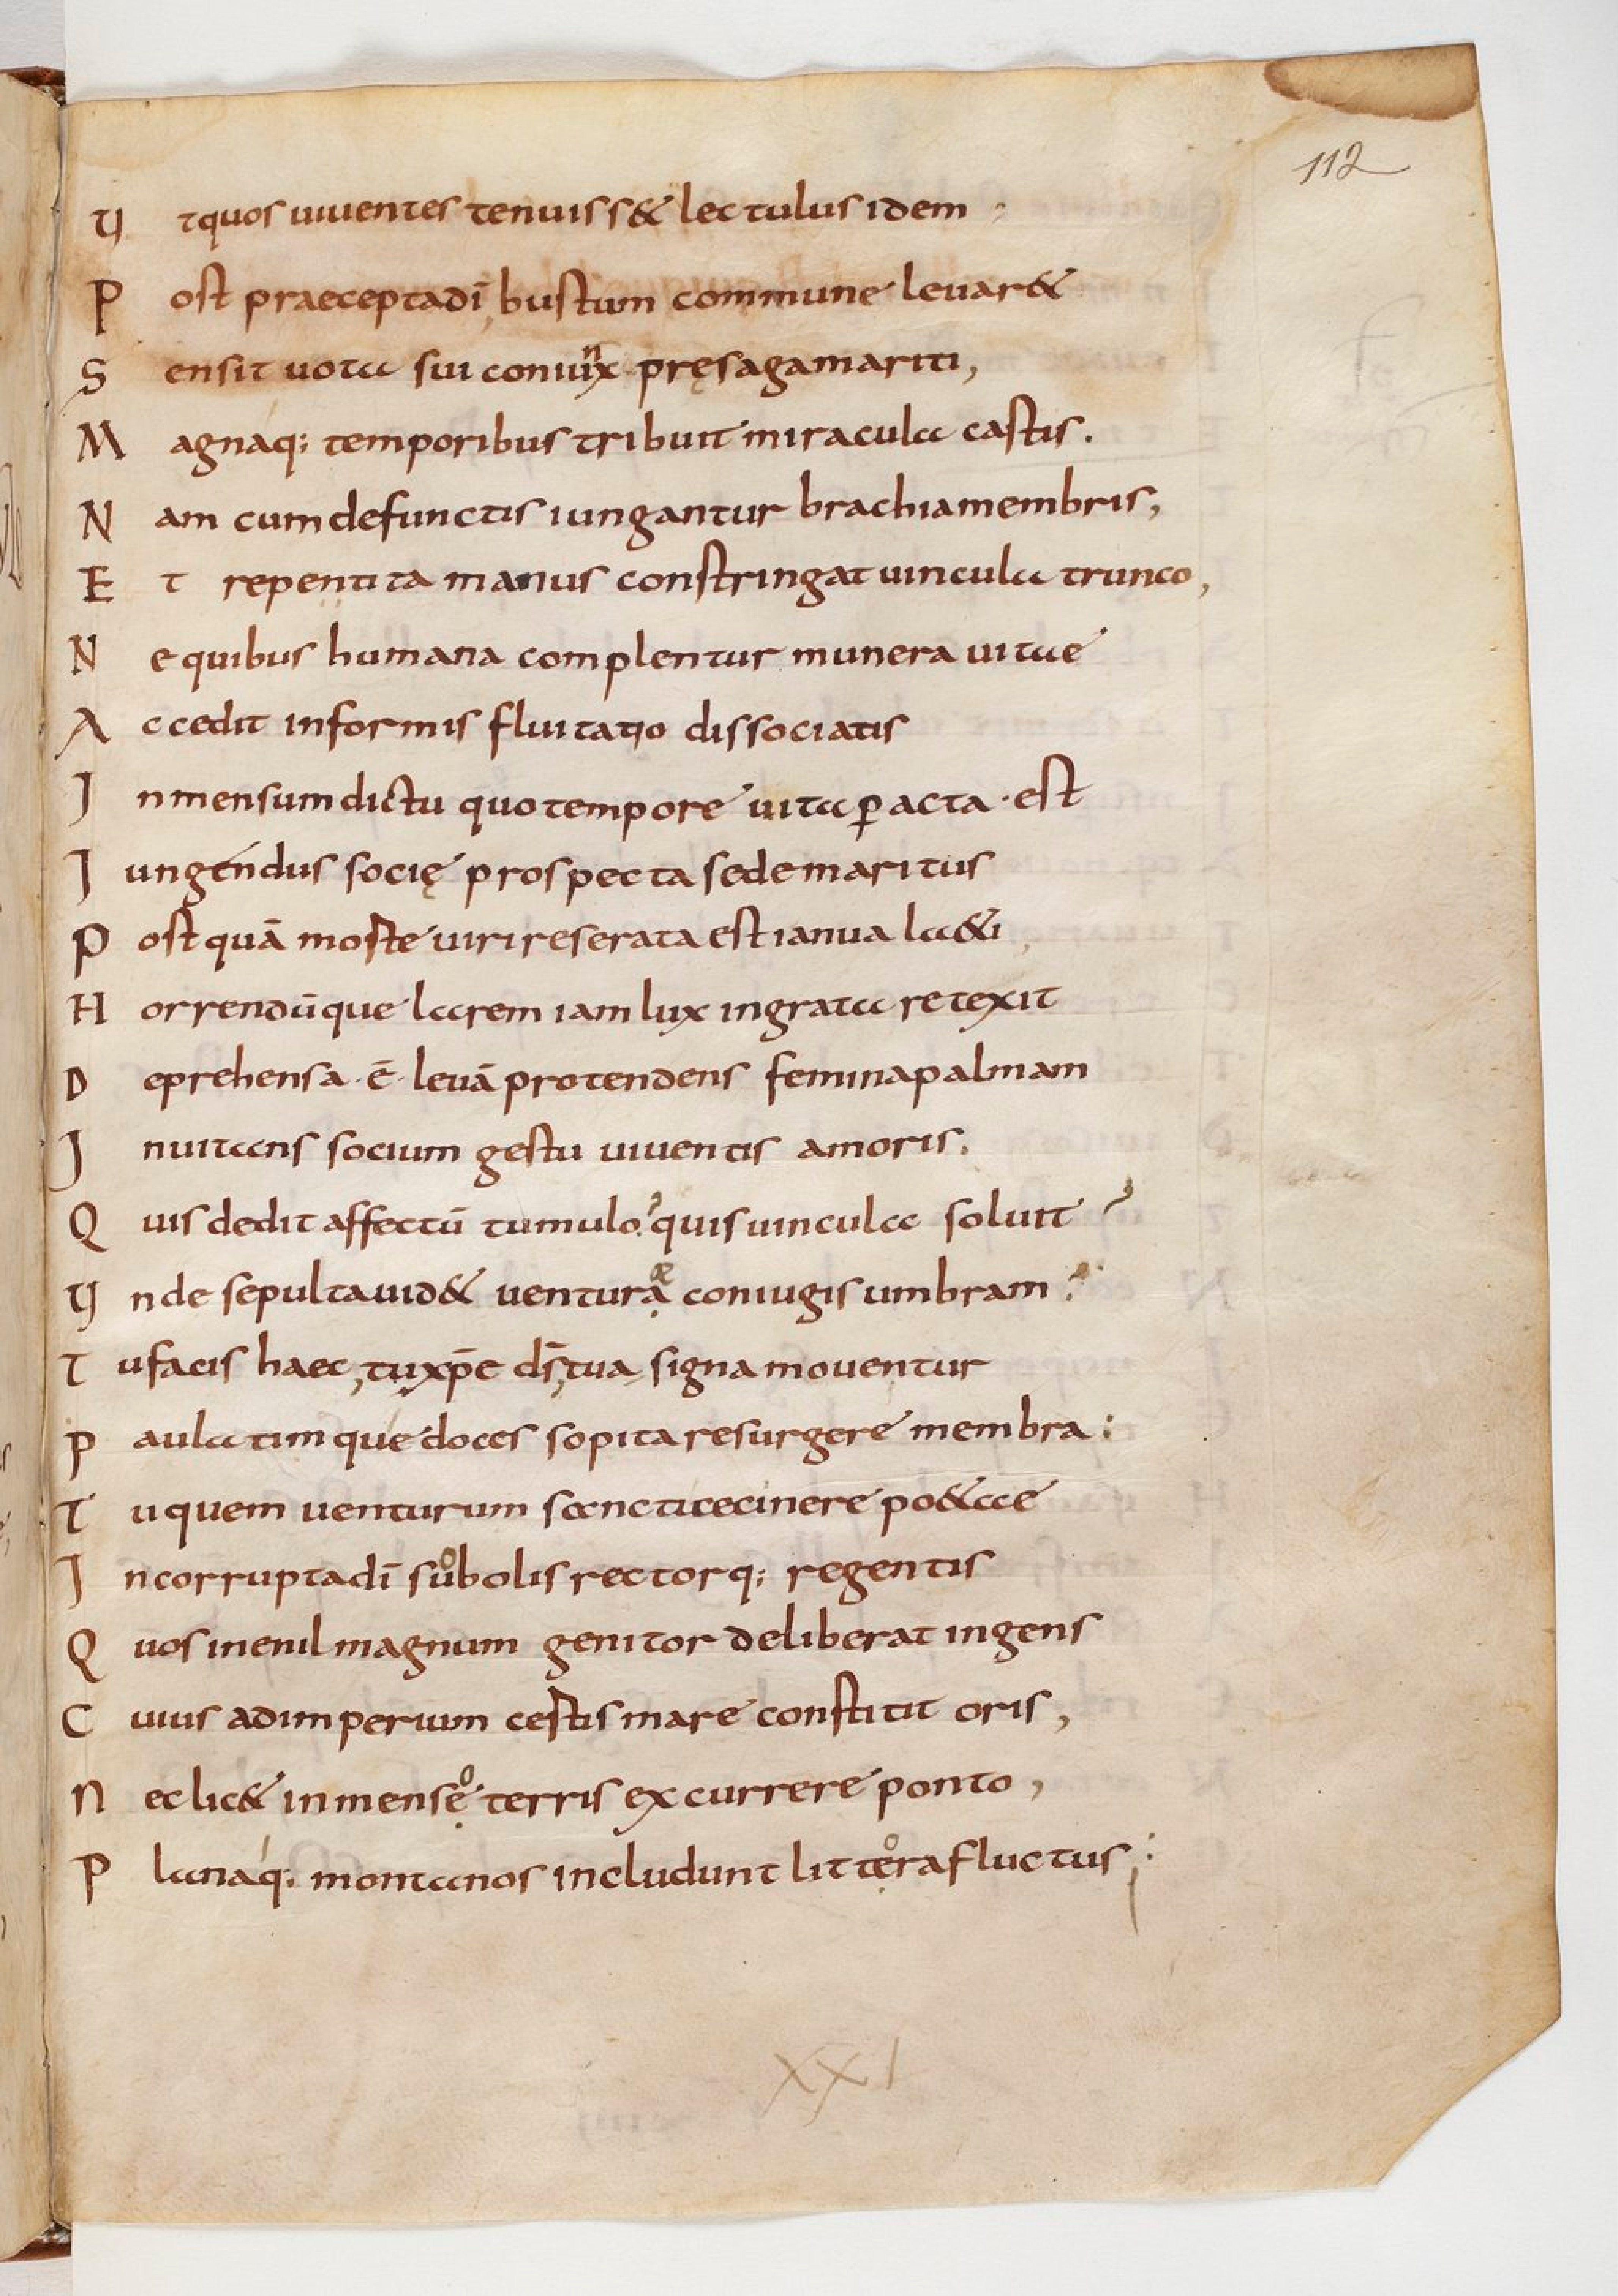 112
Ut quos uiuentes tenuiss& lectulus idem
Post praecepta dī, bustum commune leuar&
Sensit uota sui coniunx pręsaga mariti,
Magnaq; temporibus tribuit miracula castis.
Nam cum defunctis iungantur brachia membris,
Et repentita manus constringat uincula trunco,
Ne quibus humana complentur munera uitae
Accedit informis fluitatio dissociatis
Inmensum dictu quo tempore uita ꝑacta · est
Iungendus socię prospecta sede maritus
Postquā moste uiri reserata est ianua la&i
Horrendūque larem iam lux ingrata retexit
Deprehensa · ē · leuā protendens femina palmam
Inuitans socium gestu uiuentis amoris.
Quis dedit affectū tumulo? quis uincula soluit?
Unde sepulta uid& venturąæ coniugis umbram?
Tu facis haec, tu xp̄e ds̄, tua signa mouentur
Paulatimque doces sopita resurgere membra:
Tu quem uenturum sancti cecinere po&ae
Incorrupta dī suobolis rectorq; regentis
Quos in enil magnum genitor deliberat ingens
Cuius ad imperium cestis mare constitit oris,
Nec lic& inmenseọ terris excurrere ponto,
Planaq; montanos includunt litteọra fluctus;
XXI